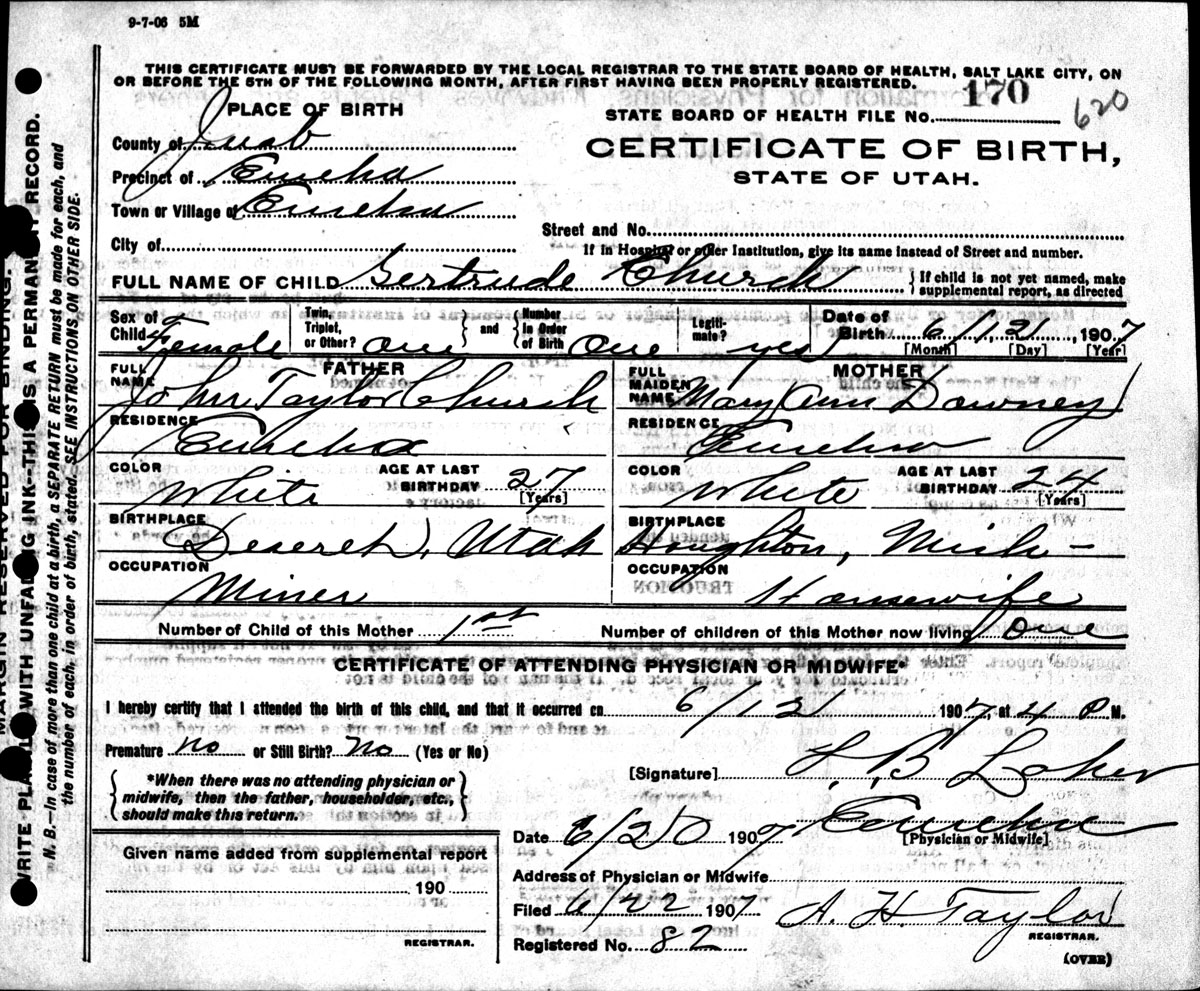 9-7-06 5M
THIS CERTIFICATE MUST BE FORWARDED BY THE LOCAL REGISTRAR TO THE STATE BOARD OF HEALTH, SALT LAKE CITY, ON
OR BEFORE THE 5TH OF THE FOLLOWING MONTH, AFTER FIRST HAVING BEEN PROPERLY REGISTERED.
PLACE OF BIRTH
County of Juab
Precinct of Eureka
Town or Village of Eureka
City of
STATE BOARD OF HEALTH FILE No. 170
620
CERTIFICATE OF BIRTH,
STATE OF UTAH.
Street and No.
If in Hospital or other Institution, give its name instead of Street and number.
FULL NAME OF CHILD Gertrude Church { If child is not yet named, make supplemental report, as directed
Sex of Child Female Twin, Triplet, or Other? one } and { Number in Order of Birth one Legitimate? yes Date of Birth 6/12/, 1907
[Month] [Day] [Year]
FATHER
FULL NAME John Taylor Church
RESIDENCE Eureka
COLOR White AGE AT LAST BIRTHDAY 27 [Years]
BIRTHPLACE Deseret, Utah
OCCUPATION Miner
MOTHER
FULL MAIDEN NAME Mary (Ann Downey)
RESIDENCE Eureka
COLOR White AGE AT LAST BIRTHDAY 24 [Years]
BIRTHPLACE Houghton, Mich-
OCCUPATION Housewife
Number of Child of this Mother 1st Number of children of this Mother now living One
CERTIFICATE OF ATTENDING PHYSICIAN OR MIDWIFE*
I hereby certify that I attended the birth of this child, and that it occurred on 6/12 1907, at 4 P. M.
Premature no or Still Birth? No (Yes or No)
{ *When there was no attending physician or midwife, then the father, householder, etc., should make this return. }
[Signature] L. B. Laker
Eureka
[Physician or Midwife]
Date 6/20 1907
Address of Physician or Midwife
Filed 6/22 1907 A. H. Taylor
REGISTRAR.
Registered No. 82
(OVER)
Given name added from supplemental report
190
REGISTRAR.
MARGIN RESERVED FOR BINDING.
WRITE PLAINLY WITH UNFADING INK—THIS IS A PERMANENT RECORD.
N. B.—In case of more than one child at a birth, a SEPARATE RETURN must be made for each, and
the number of each, in order of birth, stated. SEE INSTRUCTIONS ON OTHER SIDE.